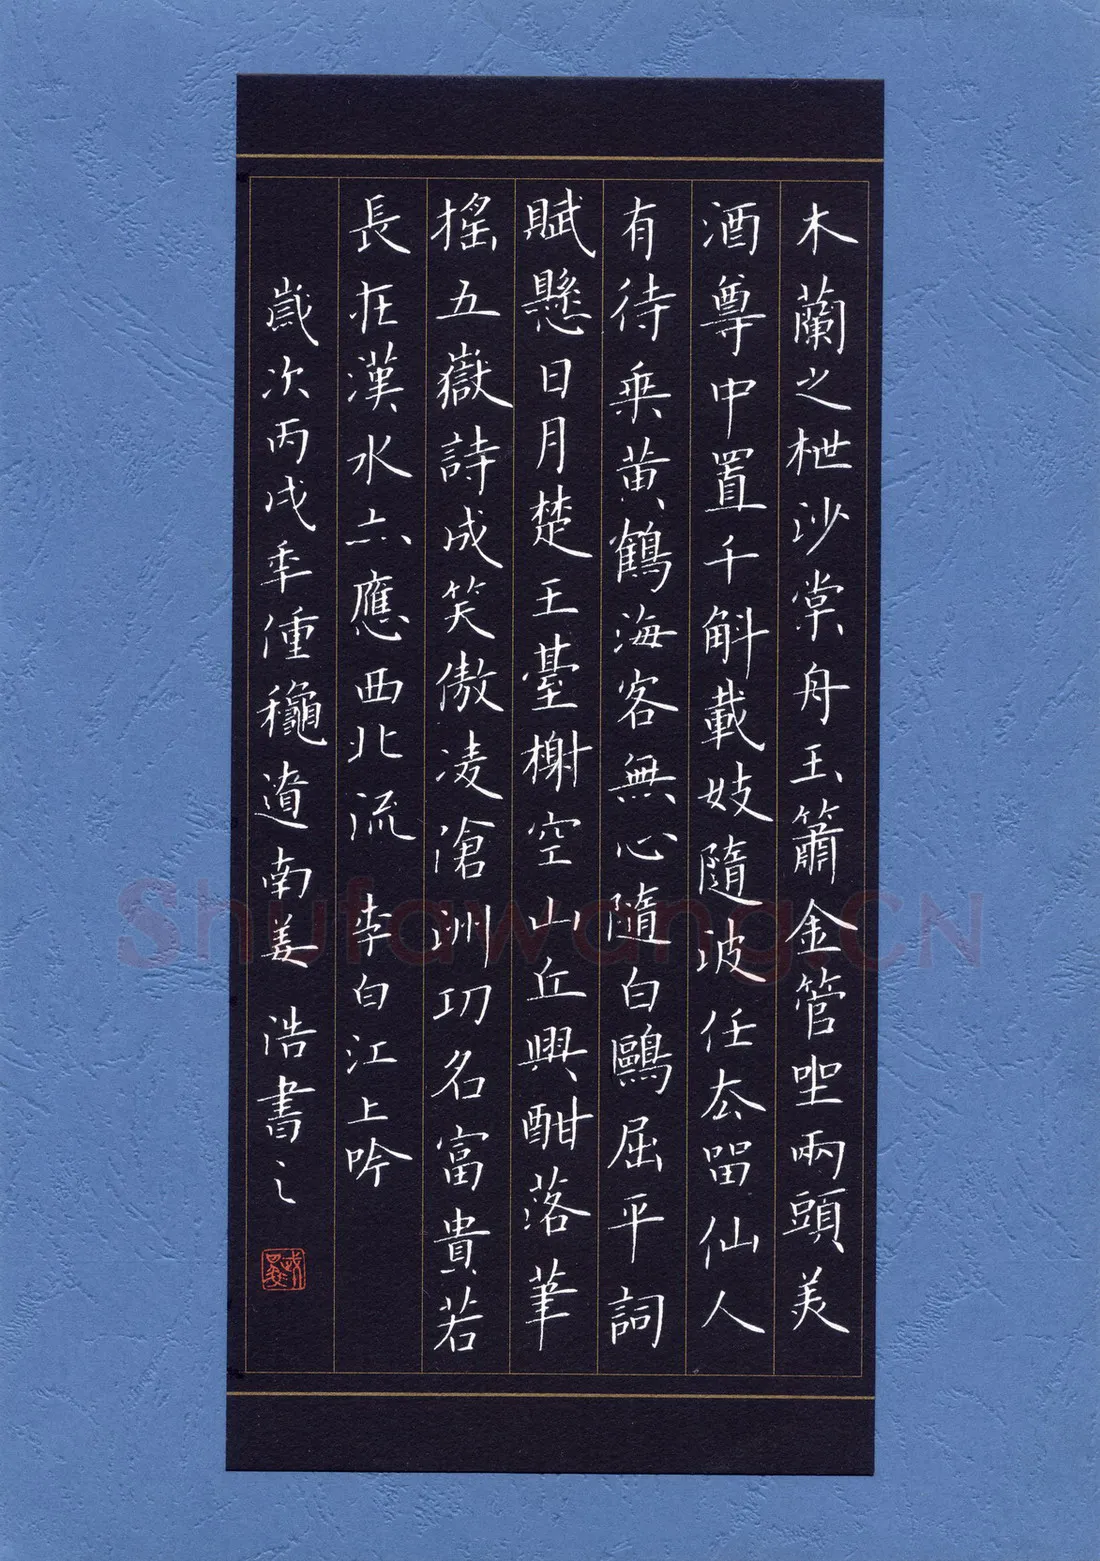 木蘭之枻沙棠舟玉簫金管坐兩頭美
酒尊中置千斛載妓隨波任去留仙人
有待乘黄鶴海客無心隨白鷗屈平詞
賦懸日月楚王臺榭空山丘興酣落筆
搖五嶽詩成笑傲凌滄洲功名富貴若
長在漢水亦應西北流 李白江上吟
歲次丙戌秊偅穐南姜 浩書之
Shufawang.CN